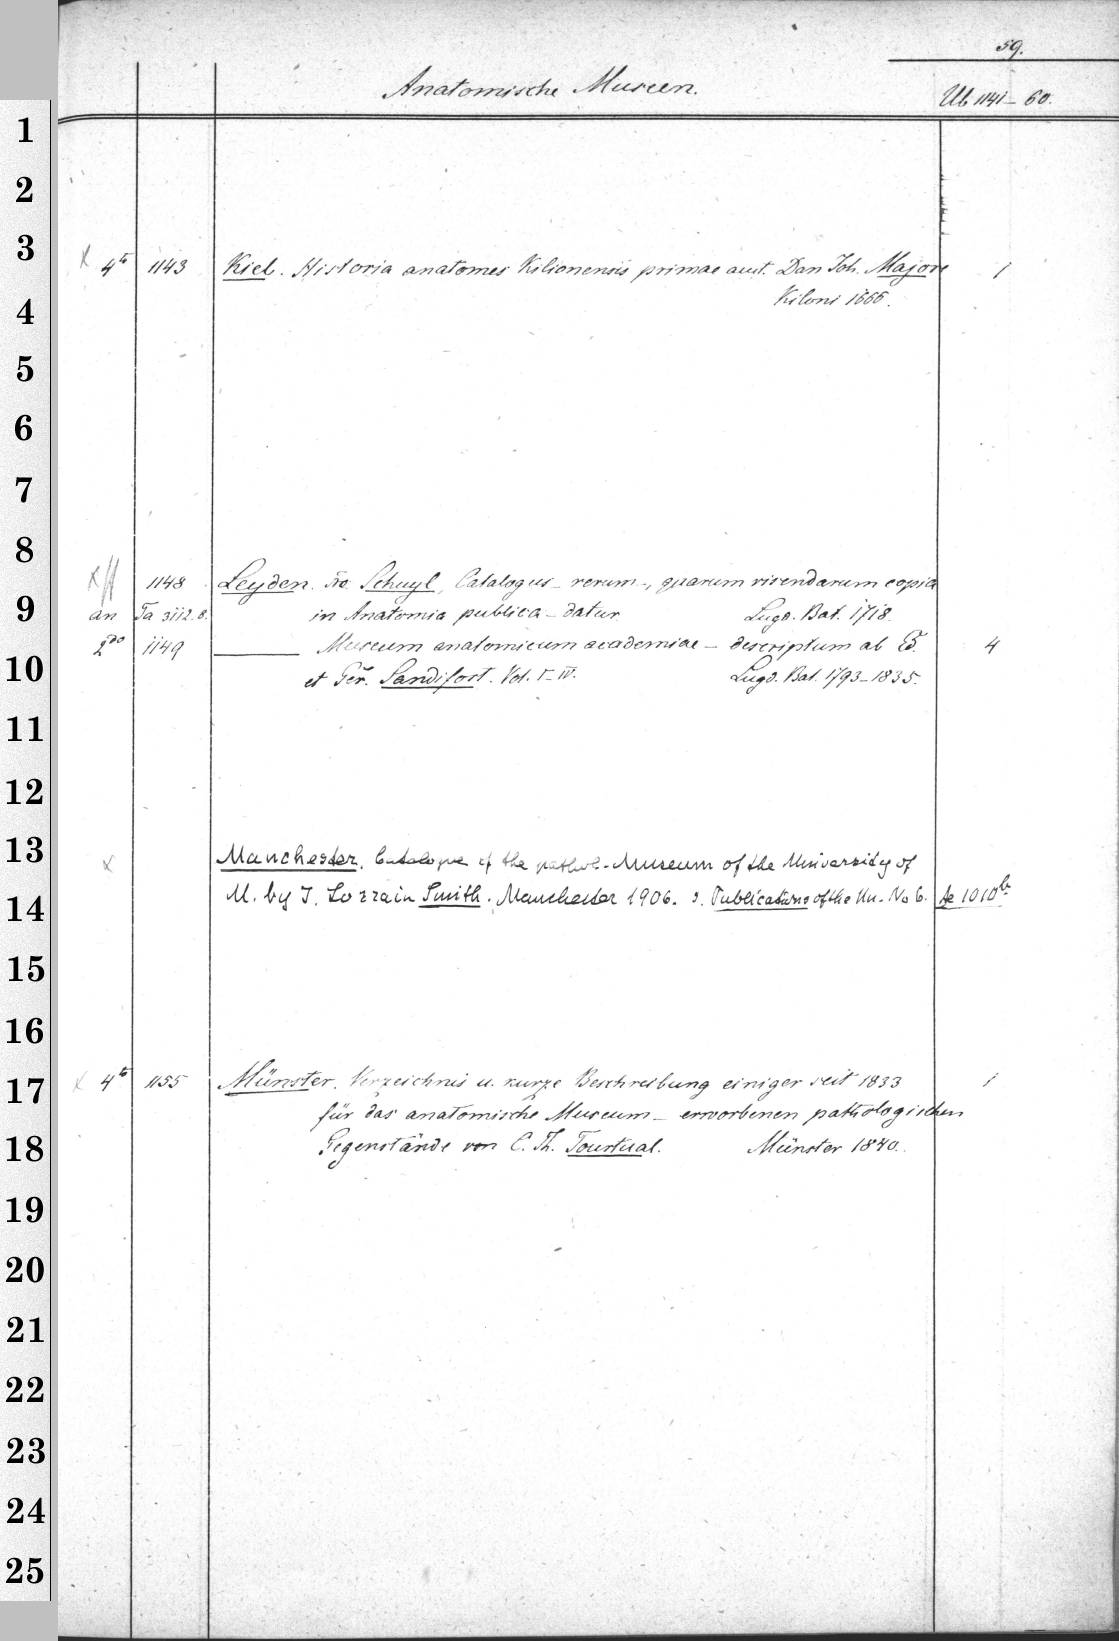 59.
Anatomische Museen.
Ub 1141–60.
1
2
3
x 4to 1143 Kiel. Historia anatomes Kilionensis primae auct. Dan Joh. Majore 1
Kiloni 1666.
4
5
6
7
8
x 1148 Leyden. Flo. Schuyl, Catalogus – rerum –, quarum visendarum copia
9
an Ta 3112.8. in Anatomia publica – datur Lugd. Bat. 1718.
2do 1149 Museum anatomicum academiae – descriptum ab Ed. 4
10
et Ger. Sandifort. Vol. I–IV. Lugd. Bat. 1793–1835.
11
12
13
x Manchester. Catalogue of the pathol. Museum of the University of
14
M. by J. Lorrain Smith. Manchester 1906. s. Publications of the Un. No 6. Ae 1010b
15
16
17
x 4to 1155 Münster. Verzeichnis u. kurze Beschreibung einiger seit 1833 1
für das anatomische Museum – erworbenen pathologischen
18
Gegenstände von C. Th. Tourtual. Münster 1840.
19
20
21
22
23
24
25